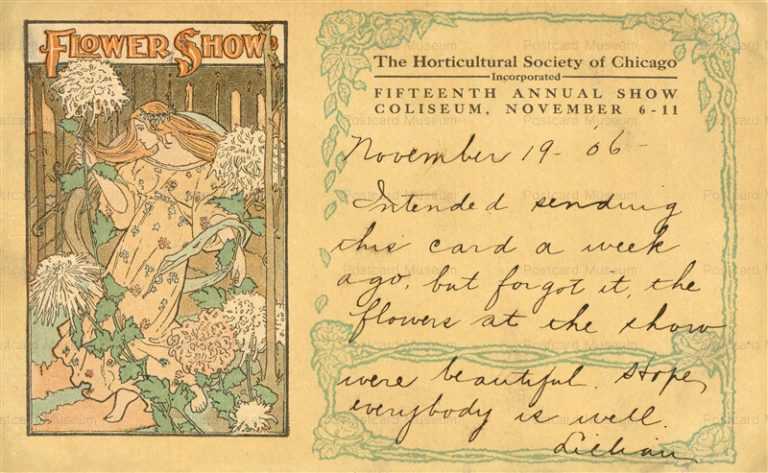 FLOWER SHOW
The Horticultural Society of Chicago
Incorporated
FIFTEENTH ANNUAL SHOW
COLISEUM, NOVEMBER 6-11
November 19 - '06 -
Intended sending
this card a week
ago, but forgot it, the
flowers at the show
were beautiful. Hope
everybody is well.
Lillian